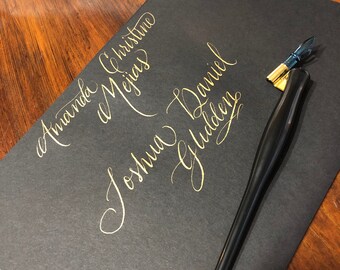 Amanda Christine
Mejias
Joshua Daniel
Glidden